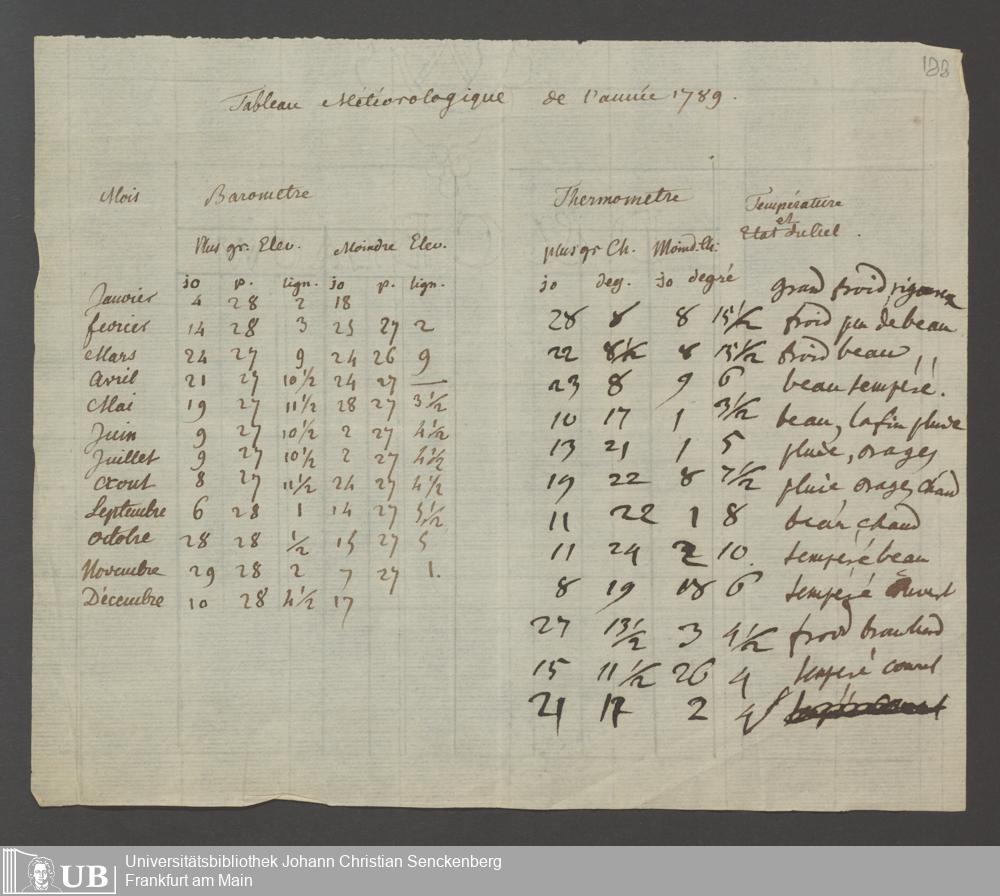 133
Tableau Météorologique de l'année 1789.
Mois Barometre Thermometre Température
et
Etat du Ciel.
Plus gr. Elev. Moindre Elev. plus gr Ch. Moind. Ch.
jo p. lign. jo p. lign. jo deg. jo degré
Janvier 4 28 2 18
fevrier 14 28 3 25 27 2
Mars 24 27 9 24 26 9
Avril 21 27 10 1/2 24 27 —
Mai 19 27 11 1/2 28 27 3 1/2
Juin 9 27 10 1/2 2 27 4 1/2
Juillet 9 27 10 1/2 2 27 4 1/2
Aout 8 27 11 1/2 24 27 4 1/2
Septembre 6 28 1 14 27 5 1/2
Octobre 28 28 1/2 15 27 5
Novembre 29 28 2 7 27 1.
Décembre 10 28 4 1/2 17
grand froid rigoureux
28 8 8 15 1/2 froid peu de beau
22 8 1/2 8 15 1/2 froid beau
23 8 9 6 beau tempéré.
10 17 1 3 1/2 beau, la fin pluie
13 21 1 5 pluie, orages
19 22 8 7 1/2 pluie orages chaud
11 22 1 8 beau chaud
11 24 2 10 tempéré beau
8 19 18 6 tempéré couvert
27 13 1/2 3 4 1/2 froid brouillard
15 11 1/2 26 4 tempéré couvert
21 17 2 4
UB
Universitätsbibliothek Johann Christian Senckenberg
Frankfurt am Main